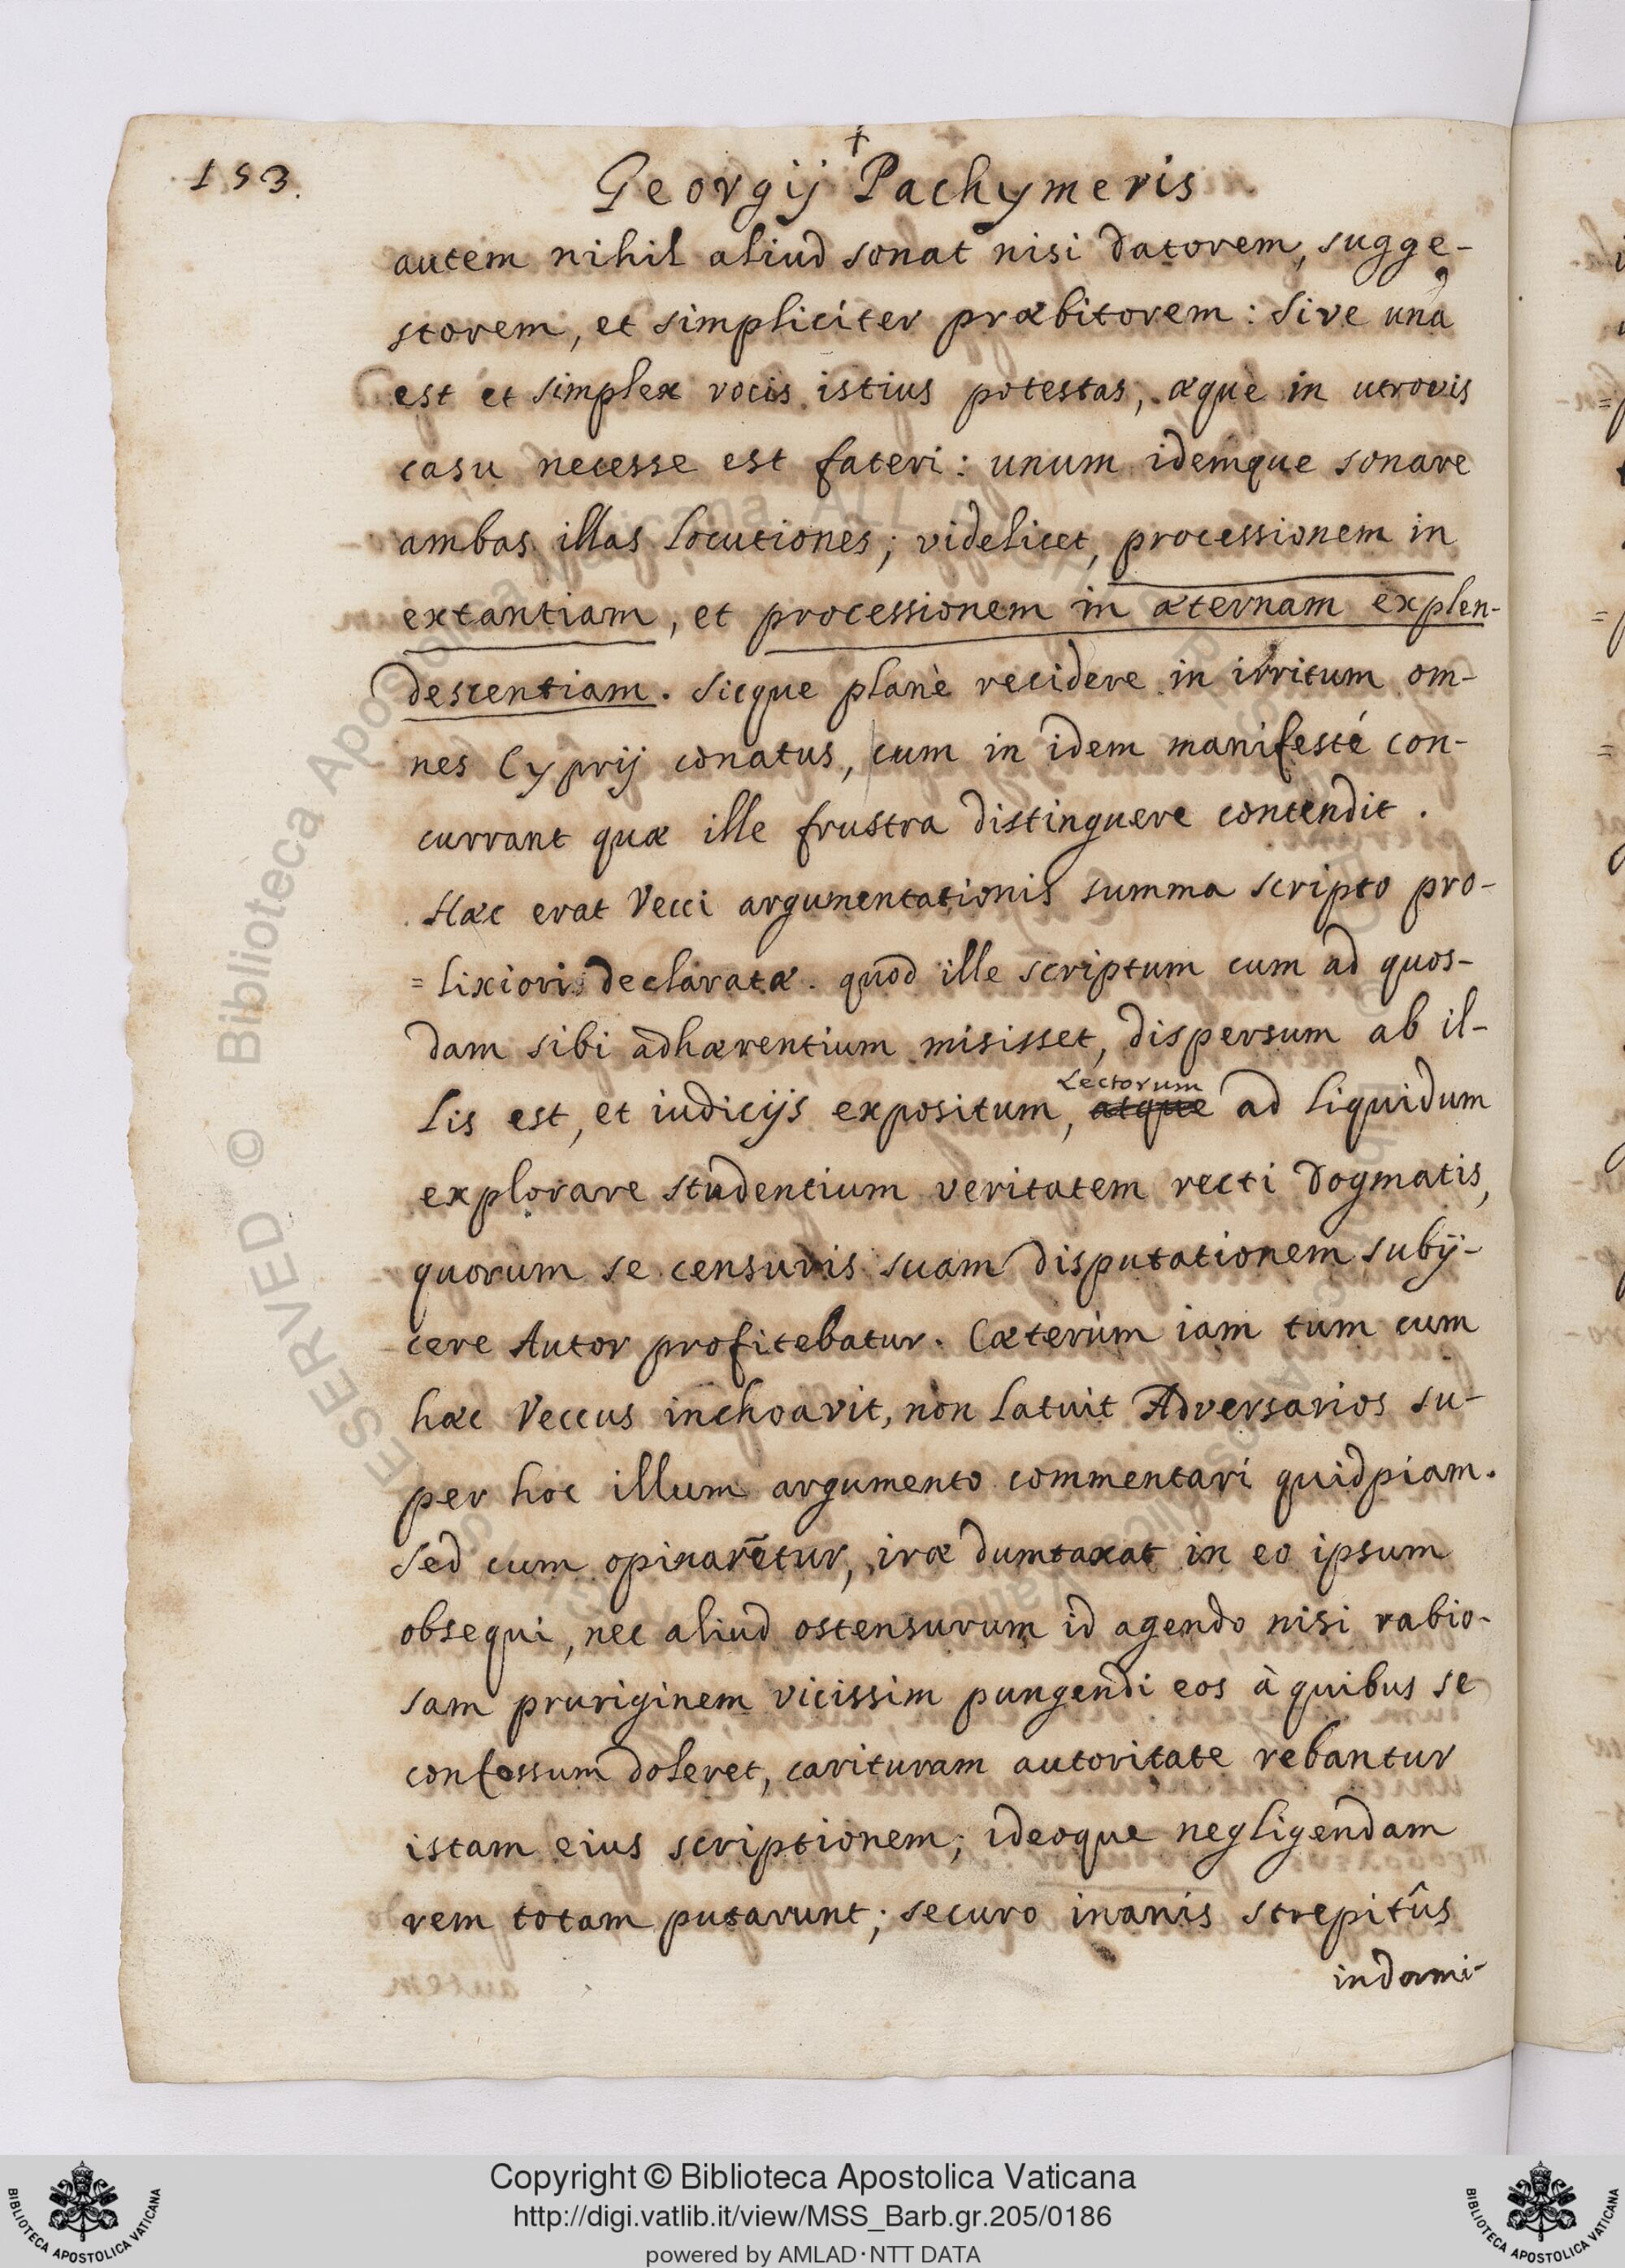 153.
†
Georgij Pachymeris
autem nihil aliud sonat nisi datorem, sugge-
storem, et simpliciter præbitorem: sive una
est et simplex vocis istius potestas, æquè in utrovis
casu necesse est fateri: unum idemque sonare
ambas illas locutiones; videlicet, processionem in
extantiam, et processionem in æternam explen-
descentiam. sicque planè recidere in irritum om-
nes Cyprij conatus, cum in idem manifesté con-
currant quæ ille frustra distinguere contendit.
Hæc erat Vecci argumentationis summa scripto pro-
=lixiori declaratæ. quod ille scriptum cum ad quos-
dam sibi adhærentium misisset, dispersum ab il-
lis est, et iudicijs expositum, atque Lectorum ad liquidum
explorare studentium veritatem recti dogmatis,
quorum se censuris suam disputationem subij-
cere Autor profitebatur. Cæterùm iam tum cum
hæc Veccus inchoavit, non latuit Adversarios su-
per hoc illum argumento commentari quidpiam.
sed cum opinarẽtur, iræ dumtaxat in eo ipsum
obsequi, nec aliud ostensurum id agendo nisi rabio-
sam pruriginem vicissim pungendi eos à quibus se
confossum doleret, carituram autoritate rebantur
istam eius scriptionem; ideoque negligendam
rem totam putarunt; securo inanis strepitûs
indomi-
Copyright © Biblioteca Apostolica Vaticana
http://digi.vatlib.it/view/MSS_Barb.gr.205/0186
powered by AMLAD·NTT DATA
BIBLIOTECA APOSTOLICA VATICANA
BIBLIOTECA APOSTOLICA VATICANA